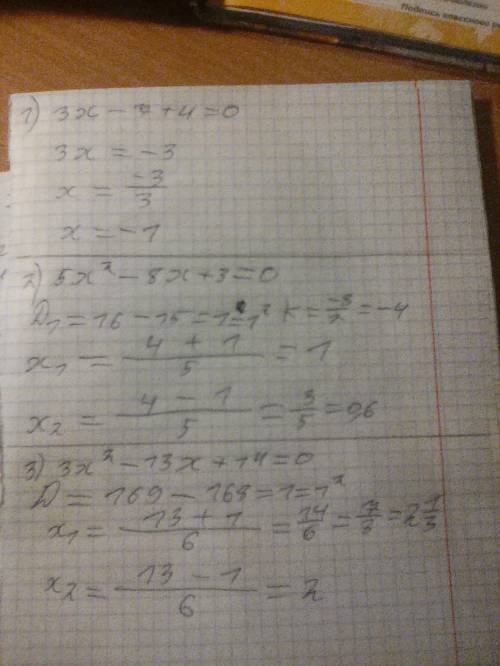 Подпись классного
1) 3x - 7 + 4 = 0
3x = -3
x = -3/3
x = -1
2) 5x² - 8x + 3 = 0
D₁ = 16 - 15 = 1 = 1² k = -8/2 = -4
x₁ = (4 + 1)/5 = 1
x₂ = (4 - 1)/5 = 3/5 = 0,6
3) 3x² - 13x + 14 = 0
D = 169 - 168 = 1 = 1²
x₁ = (13 + 1)/6 = 14/6 = 7/3 = 2 1/3
x₂ = (13 - 1)/6 = 2